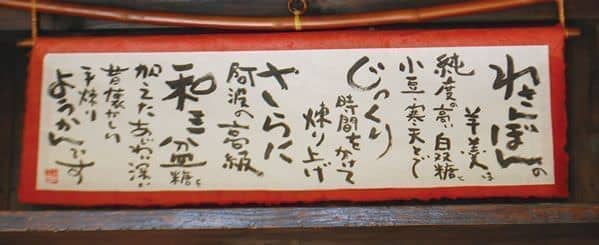 わさんぼんの
羊羹は
純度の高い白双糖と
小豆・寒天とで
じっくり
時間をかけて
煉り上げ
さらに
阿波の高級
和三盆糖を
加えたあじわい深い
昔懐かしい
手煉り
ようかんです